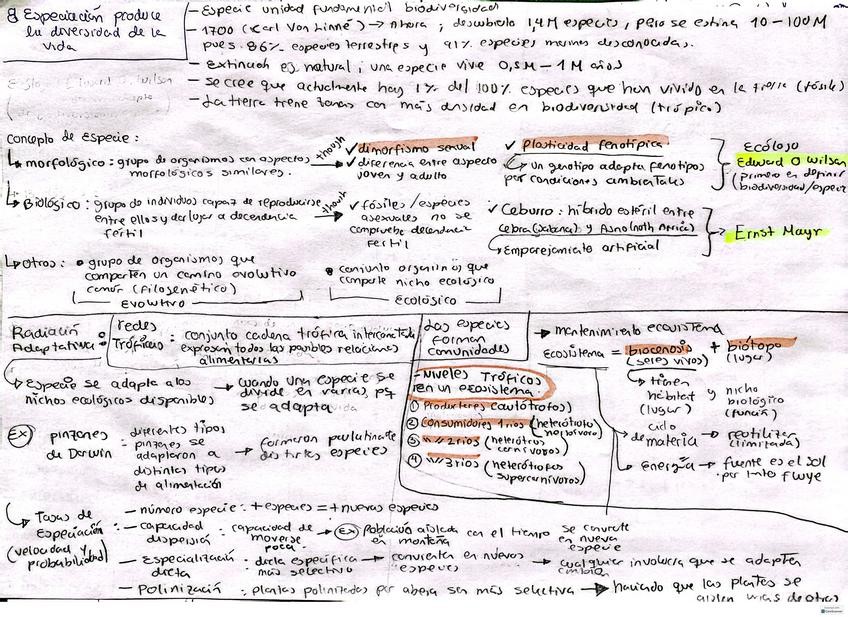 8 Especiación produce
la diversidad de la
vida
- Especie unidad fundamental biodiversidad
- 1700 (Karl Von Linné) → Ahora ; descubierto 1,4M especies, pero se estima 10-100M
pues 86% especies terrestres y 91% especies marinas desconocidas.
- Extinción es natural ; una especie vive 0,5M - 1M años
- se cree que actualmente hay 1% del 100% especies que han vivido en la tierra (fósiles)
- La tierra tiene zonas con más densidad en biodiversidad (trópico)
Concepto de Especie :
↳ morfológico : grupo de organismos con aspectos
morfológicos similares.
though
✓ dimorfismo sexual
✓ diferencia entre aspecto
joven y adulto
✓ Plasticidad fenotípica
↳ un genotipo adapta fenotipos
por condiciones ambientales
Ecólogo
Edward O Wilson
(primero en definir
biodiversidad/especie
↳ Biológico : grupo de individuos capaz de reproducirse
entre ellos y dar lugar a decendencia
fertil
though
✓ fósiles / especies
asexuales no se
comprueba decendencia
fertil
✓ Ceburro : híbrido estéril entre
cebra (sabana) y Asno (north Africa)
↳ Emparejamiento artificial
Ernst Mayr
↳ Otros : • grupo de organismos que
comparten un camino evolutivo
comun (filogenético)
Evolutivo
• conjunto organismos que
comparte nicho ecológico
Ecológico
Radiación
Adaptativa :
↳ Especie se adapta a los
nichos ecológicos disponibles
→ cuando una especie se
divide en varias, pq
se adapta
redes
Tróficas : conjunto cadena trófica interconectada
expresan todas las posibles relaciones
alimentarias
Las especies
forman
comunidades
→ mantenimiento ecosistema
Ecosistema = biocenosis + biótopo
(seres vivos) (lugar)
↳ tienen
hábitat y nicho
(lugar) biológico
(función)
ciclo
de materia → reutiliza
(limitada)
Energía → fuente es el sol
por tanto fluye
- Niveles Tróficos
en un ecosistema
① Productores (autótrofos)
② Consumidores 1rios (heterótrofos
herbívoros)
③ " " 2rios (heterótrofos
carnívoros)
④ " " 3rios (heterótrofos
supercarnívoros)
Ex pinzones
de Darwin = diferentes tipos
pinzones se
adaptaron a
distintos tipos
de alimentación
→ formaron paulatinamente
distintas especies
↳ Tasas de
Especiación :
(velocidad y
probabilidad)
- número especie : + especies = + nuevas especies
- capacidad
dispersión : capacidad de
moverse
poca → Ex Población aislada
en montaña con el tiempo se convierte
en nueva
especie
- Especialización
dieta : dieta específica
más selectivo → convierta en nuevas
especies → cualquier cambio involucra que se adapten
- Polinización : plantas polinizadas por abeja son más selectiva → haciendo que las plantas se
aislen unas de otras